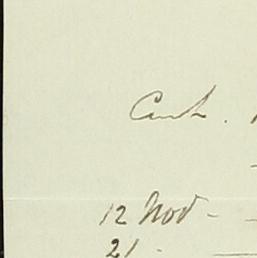 Cash.
12 Nov -
21 -